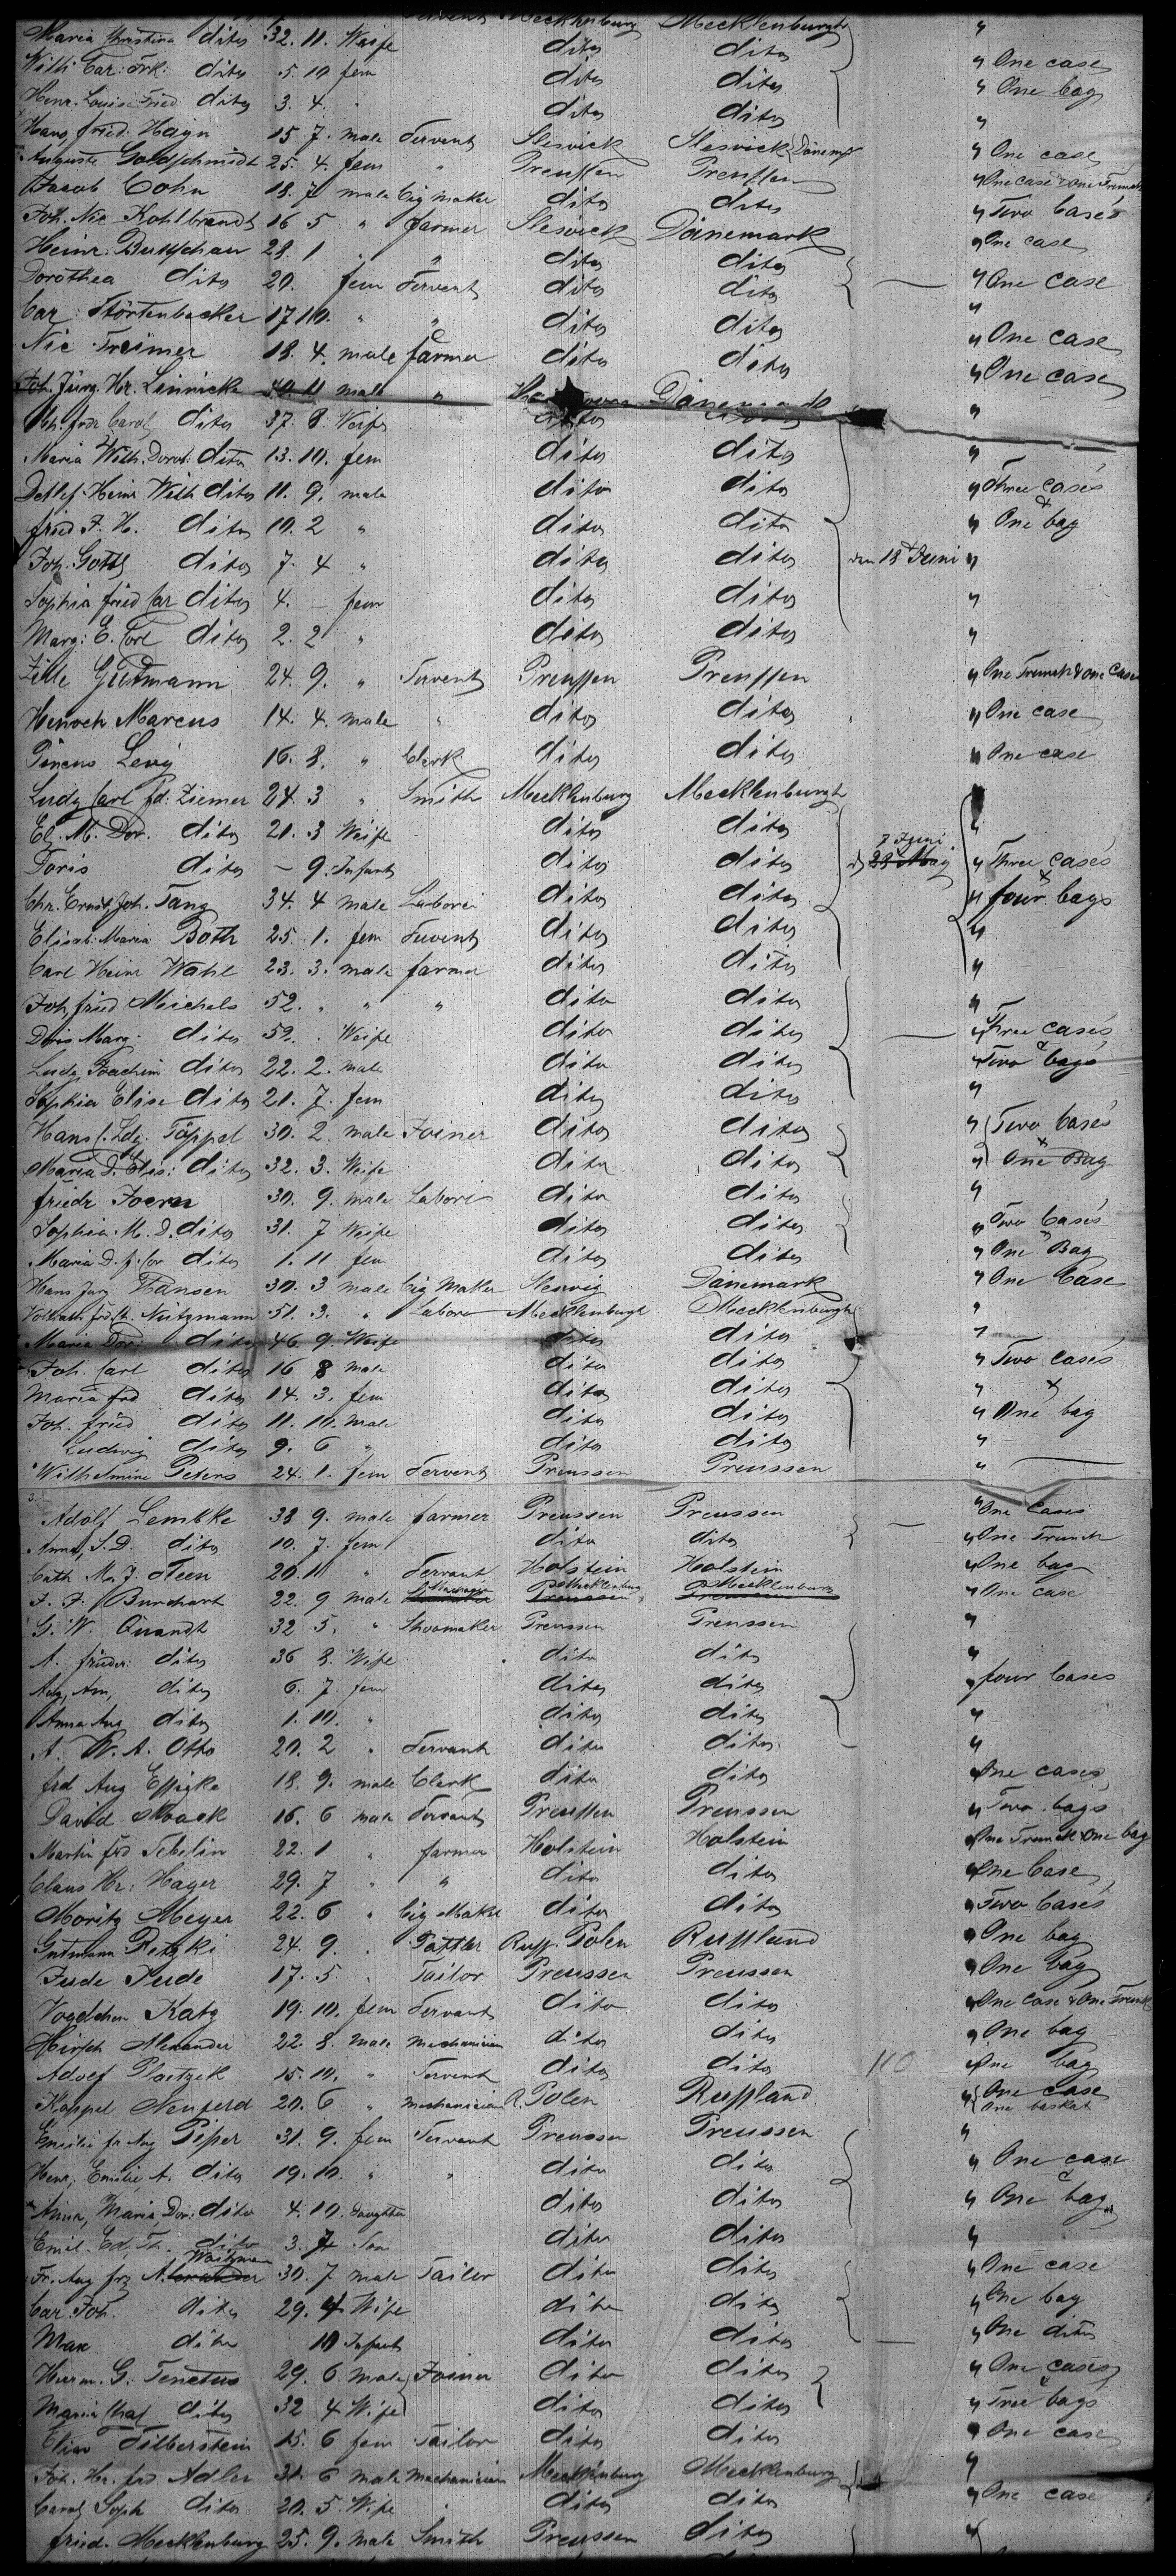 Servent Mecklenburg Mecklenburgh "
Maria Christina ditto 32. 11. Weife ditto ditto " One case
Wilh Car: Frk: ditto 5. 10 fem ditto ditto " One bag
Henr. Louise Fried. ditto 3. 4. " ditto ditto "
Hans fried. Hagn 15 7. male Servent Slesvick Slesvick Dänemk " One case
Auguste Goldschmidt 25. 4. fem " Preussen Preussen " One case & one Trunck
Jacob Cohn 18. 7 male Cig maker ditto ditto " Two Cases
Joh. Nic Kohlbrandt 16 5 " farmer Slesvick Dänemark " One case
Heinr. Butschau 28. 1 " " ditto ditto
Dorothea ditto 20. fem Servent ditto ditto " One case
Car: Störtenbecker 17 10. " " ditto ditto "
Nic Treimer 18. 4. male farmer ditto ditto " One case
Joh. Jürg. Hr. Linnicke 40 11 male " Dänemark " One case
frdr Carol ditto 37. 8. Weife ditto ditto "
Maria Wilh. Dorot: ditto 13. 10. fem ditto ditto "
Detlef. Heinr Wilh ditto 11. 9. male ditto ditto " Three cases
fried F. H. ditto 10. 2 " ditto ditto " & One bag
Joh. Gottl ditto 7. 4 " ditto ditto den 18t Juni "
Sophia fried Car ditto 4. – fem ditto ditto "
Marg: E. Corl ditto 2. 2 " ditto ditto "
Zille Guttmann 24. 9. " Servent Preussen Preussen " One Trunck & one Case
Henoch Marcus 14. 4. male " ditto ditto " One case
Pincus Levy 16. 8. " Clerk ditto ditto " One case
Ludg Carl fd: Ziemer 24. 3 " Smith Mecklenburg Mecklenburgh
El. M. Dor. ditto 21. 3 Weife ditto ditto 8 Juni "
Doris ditto – 9. Infant ditto ditto d 23 May " Three cases
Chr. Ernst Joh. Tang 34. 4 male Laborer ditto ditto " & four bags
Elisab: Maria Both 25. 1. fem Servent ditto ditto "
Carl Heinr Wahl 23. 3. male farmer ditto ditto "
Joh, fried Michels 52. " " " ditto ditto "
Doris Marg. ditto 52. . Weife ditto ditto " Three cases
Ludg. Joachim ditto 22. 2. male ditto ditto " & Two bags
Sophia Elise ditto 21. 7. fem ditto ditto "
Hans f. Ldg. Täppel 30. 2. male Joiner ditto ditto " Two Cases
Maria D. Elis: ditto 32. 3. Weife ditto ditto " & One Bag
friedr Joern 30. 9. male Labori ditto ditto "
Sophia. M. D. ditto 31. 7 Weife ditto ditto " Two Cases
Maria D. f. Cor ditto 1. 11 fem ditto ditto " & One Bag
Hans Jurg Hansen 30. 3 male Cig Maker Slesvig Dänemark " One Case
Nützmann 51. 3. " Labore Mecklenburgh Mecklenburgh "
Maria Dor: ditto 46. 9. Weife ditto ditto "
Joh. Carl ditto 16 8 male ditto ditto " Two cases
Maria frd ditto 14. 3. fem ditto ditto " &
Joh. fried ditto 11. 10. male ditto ditto " One bag
Ludwig ditto 9. 6 " ditto ditto "
Wilhelmine Peters 24. 1. fem Servent Preussen Preussen "
Adolf Lembke 33 9. male farmer Preussen Preussen " One Cases
Anna, S. D. ditto 10. 7. fem ditto ditto " One Trunck
Cath M. J. Steen 20. 11 " Servant Holstein Holstein " One bag
J. F. Burchart 22. 9 male Mecklenburg Mecklenburg " One case
G. W. Quandt 32 5. " Shoomaker Preussen Preussen "
A. frieder: ditto 36 8. Wife ditto ditto "
Aug, Am, ditto 6. 7. fem ditto ditto " four Cases
Anna Aug ditto 1. 10. " ditto ditto "
A. W. A. Otto 20. 2 " Servant ditto ditto "
frd Aug Effigke 18. 9. male Clerk ditto ditto " One cases
David Noack 16. 6 male Servant Preussen Preussen " Two bags
Martin frd Tebelin 22. 1 " farmer Holstein Holstein " One Trunck & One bag
Claus Hr: Hager 29. 7 " " ditto ditto " One Case
Moritz Meyer 22. 6 " Cig Maker ditto ditto " Two Cases
Gutmann Retzki 24. 9. . Sattler Russ. Polen Russland " One bag
Jude Jude 17. 5. . Tailor Preussen Preussen " One bag
Vogelchen Katz 19. 10. fem Servant ditto ditto " One case & One Trunck
Hirsch Alexander 22. 8. male mechanician ditto ditto " One bag
Adolf Ploetzek 15. 10. " Servent ditto ditto 110 " One bag
Koppel Neuferd 20. 6 " mechanician R. Polen Russland " One case
One basket
Emilie fr Aug Piper 31. 9. fem Servant Preussen Preussen "
Henr, Emilie, A. ditto 19. 10. " " ditto ditto " One case
Anna, Maria, Dor: ditto 4. 10. Daughter ditto ditto " & One bag
Emil. Ed, Th. ditto 3. 7 Son ditto ditto "
Waitzman
Fr. Aug frz Alexander 30. 7 male Tailor ditto ditto " One case
Car. Joh. ditto 29. 4 Wife ditto ditto " One bag
Max ditto 10 Infant ditto ditto " One ditto
Herrm. G. Tenctus 29. 6. male Joiner ditto ditto " One cases
Maria ditto 32 4 Wife ditto ditto " & Two bags
Silberstein 15. 6 fem Tailor ditto ditto " One case
Joh. Hr. frd Adler 31. 6 male mechanician Mecklenburg Mecklenburg "
Carol Soph ditto 20. 5. Wife ditto ditto " One case
fried. Mecklenburg 25. 9. male Smith Preussen ditto "